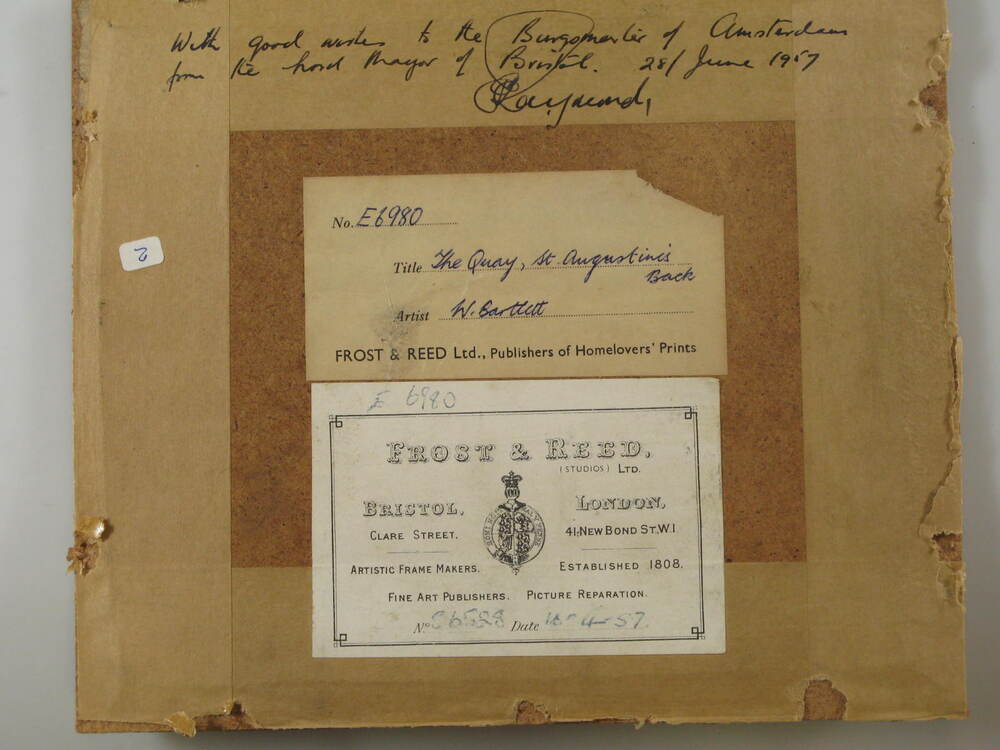 With good wishes to the Burgomaster of Amsterdam
from the Lord Mayor of Bristol. 28/ June 1957
Raymond,
2
No. E6980
Title The Quay, St Augustine's
Back
Artist W. Bartlett
FROST & REED Ltd., Publishers of Homelovers' Prints
E 6980
FROST & REED,
(STUDIOS) LTD.
BRISTOL. LONDON.
CLARE STREET. 41, NEW BOND ST. W.1
ARTISTIC FRAME MAKERS. ESTABLISHED 1808.
FINE ART PUBLISHERS. PICTURE REPARATION.
No. Date 18-4-57.